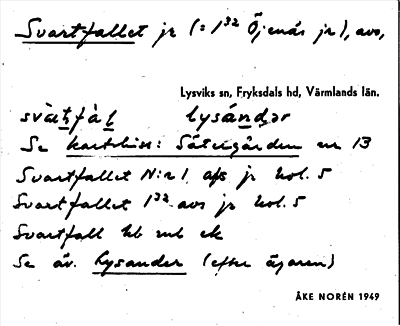 Svartfallet jr (= 1³² Öjenäs jr), avs,
Lysviks sn, Fryksdals hd, Värmlands län.
svàt̠fàl̠ lysánḍər
Se kartskiss: Sätergården nr 13
Svartfallet N:r 1 afs jr kol. 5
Svartfallet 1³² avs jr kol. 5
Svartfall hb ek
Se äv. Lysander (efter ägaren)
ÅKE NORÉN 1949